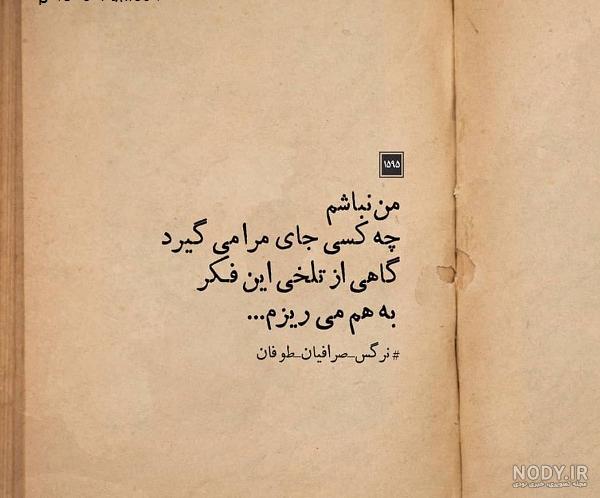 ۱۵۹۵
من نباشم
چه کسی جای مرا می گیرد
گاهی از تلخی این فکر
به هم می ریزم...
#نرگس_صرافیان_طوفان
NODY.IR
مجله تصویری، خبری نودی